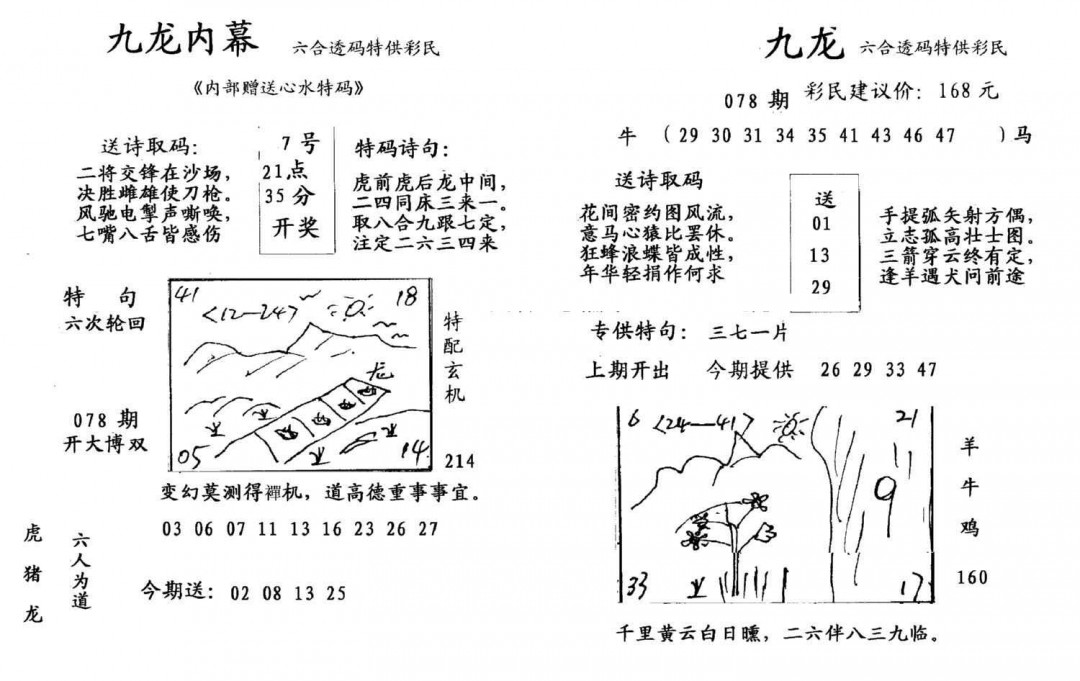 九龙内幕 六合透码特供彩民
《内部赠送心水特码》
送诗取码：
二将交锋在沙场，
决胜雌雄使刀枪。
风驰电掣声嘶唤，
七嘴八舌皆感伤
7号
21点
35分
开奖
特码诗句：
虎前虎后龙中间，
二四同床三来一。
取八合九跟七定，
注定二六三四来
特句
六次轮回
078期
开大博双
41 18
<12—24>
龙
05 14
特配玄机
214
变幻莫测得禪机，道高德重事事宜。
03 06 07 11 13 16 23 26 27
虎猪龙
六人为道
今期送：02 08 13 25
九龙 六合透码特供彩民
078期 彩民建议价：168元
牛 （29 30 31 34 35 41 43 46 47 ）马
送诗取码
花间密约图风流，
意马心猿比罢休。
狂蜂浪蝶皆成性，
年华轻捐作何求
送
01
13
29
手提弧矢射方偶，
立志孤高壮士图。
三箭穿云终有定，
逢羊遇犬问前途
专供特句：三七一片
上期开出 今期提供 26 29 33 47
6 <24—41> 21
9
33 17
羊牛鸡
160
千里黄云白日曛，二六伴八三九临。